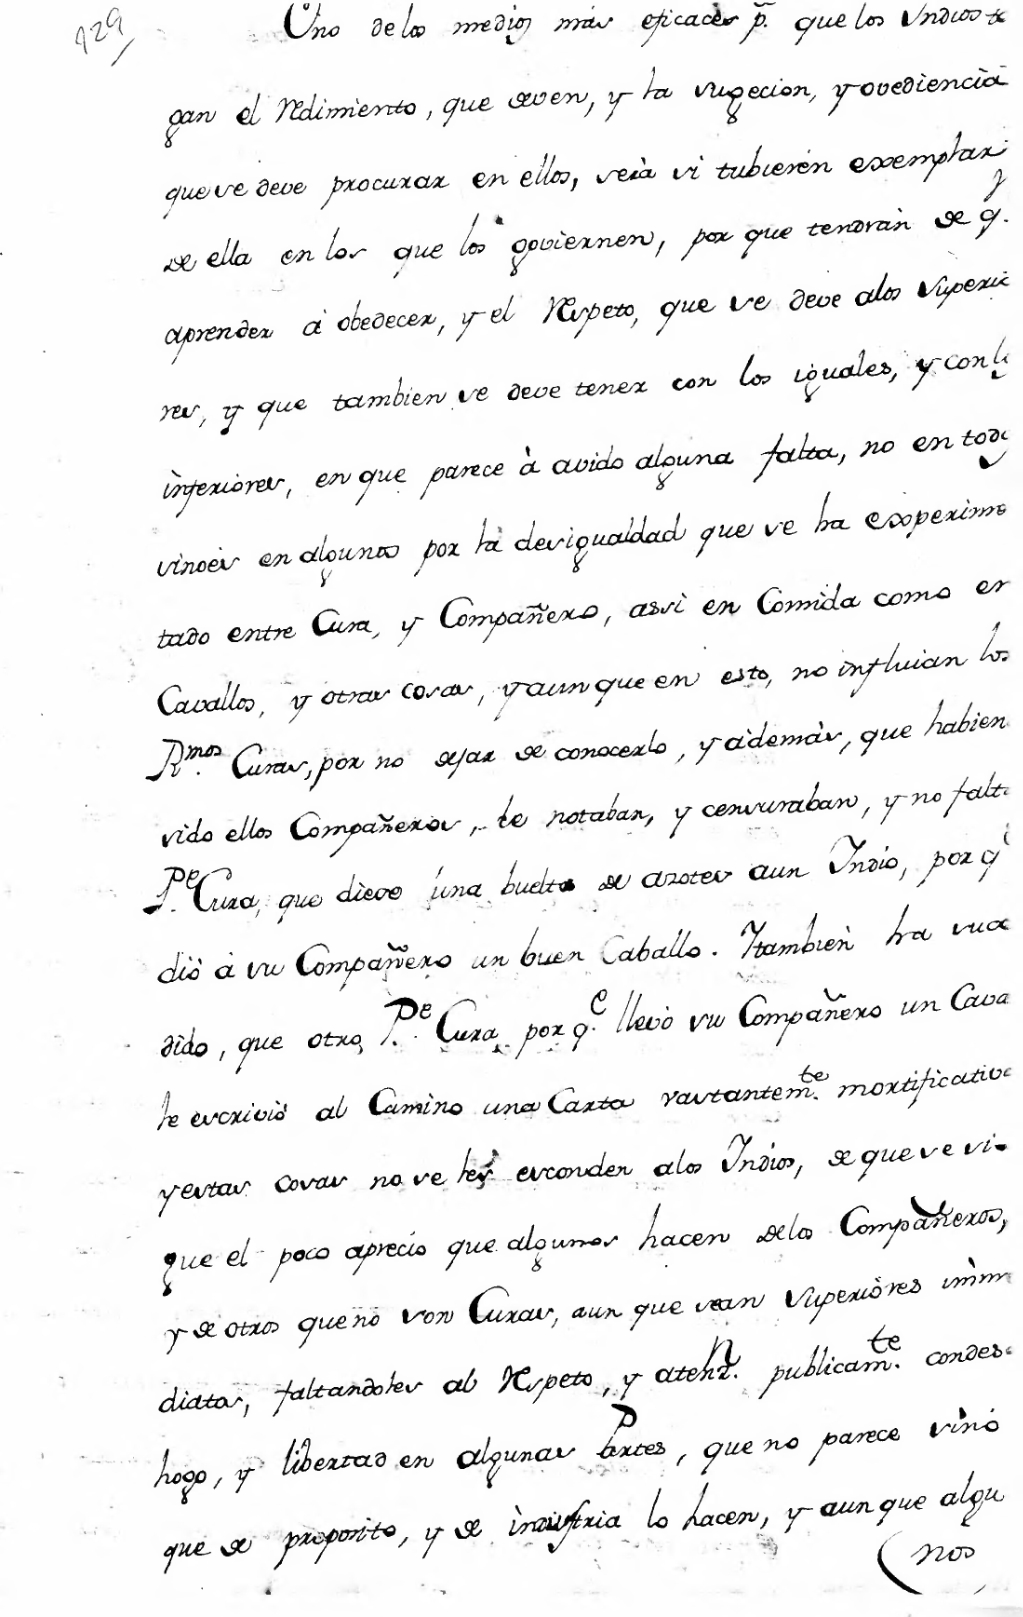 129
Uno de los medios más eficaces p.ª que los Yndios te
gan el Rdimiento, que deven, y la sugecion, y ovediencia
que se deve procurar en ellos, serà si tubieren exemplar
de ella en los que los goviernen, por que tendràn de q.
aprender à obedecer, y el Respeto, que se deve alos Superio
res, y que tambien se deve tener con los iguales, y con l
inferiores, en que parece à avido alguna falta, no en todo
sinoès en algunos por la desigualdad que se ha experimë
tado entre Cura, y Compañero, assi en Comida como en
Cavallos, y otras cosas, y aun que en esto, no influian los
R.mos Curas, por no dejar de conocerlo, y además, que habien
sido ellos Compañeros, lo notaban, y censuraban, y no falt
P.e Cura, que diese una buelta de azotes aun Indio, por q
diò à su Compañero un buen Caballo. Ytambien ha suce
dido, que otro P.e Cura por q.e llevò su Compañero un Cava
le escriviò al Camino una Carta vastantem.te mortificativa
y estas cosas no se les esconden alos Indios, de que se si-
gue el poco aprecio que algunos hacen delos Compañeros,
y de otros que no son Curas, aun que sean Superiores imm
diatos, faltandoles al Respeto, y atenz.n publicam.te condes
hogo, y libertad en algunas Partes, que no parece sinò
que de proposito, y de industria lo hacen, y aun que algu
nos